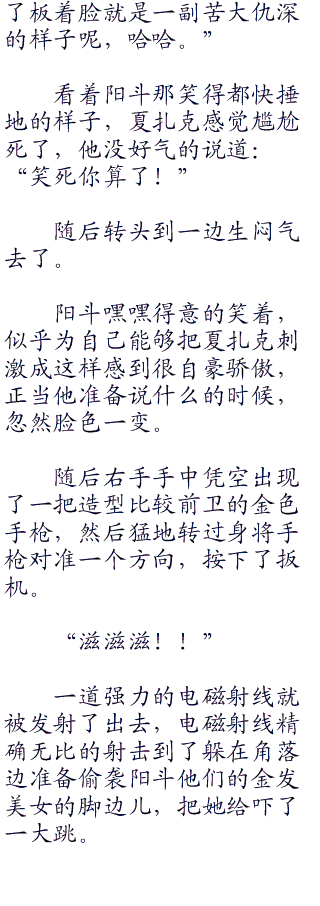 了板着脸就是一副苦大仇深
的样子呢，哈哈。”
看着阳斗那笑得都快捶
地的样子，夏扎克感觉尴尬
死了，他没好气的说道：
“笑死你算了！”
随后转头到一边生闷气
去了。
阳斗嘿嘿得意的笑着，
似乎为自己能够把夏扎克刺
激成这样感到很自豪骄傲，
正当他准备说什么的时候，
忽然脸色一变。
随后右手手中凭空出现
了一把造型比较前卫的金色
手枪，然后猛地转过身将手
枪对准一个方向，按下了扳
机。
“滋滋滋！！”
一道强力的电磁射线就
被发射了出去，电磁射线精
确无比的射击到了躲在角落
边准备偷袭阳斗他们的金发
美女的脚边儿，把她给吓了
一大跳。